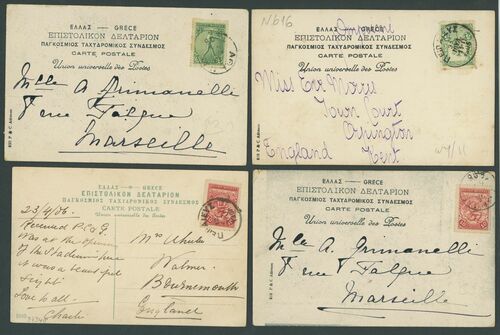 ΕΛΛΑΣ — GRECE
ΕΠΙΣΤΟΛΙΚΟΝ ΔΕΛΤΑΡΙΟΝ
ΠΑΓΚΟΣΜΙΟΣ ΤΑΧΥΔΡΟΜΙΚΟΣ ΣΥΝΔΕΣΜΟΣ
CARTE POSTALE
Union universelle des Postes
Mlle A. Immanelli
8 rue Falque
Marseille
N616
ΕΛΛΑΣ — GRECE
ΕΠΙΣΤΟΛΙΚΟΝ ΔΕΛΤΑΡΙΟΝ
ΠΑΓΚΟΣΜΙΟΣ ΤΑΧΥΔΡΟΜΙΚΟΣ ΣΥΝΔΕΣΜΟΣ
CARTE POSTALE
Union universelle des Postes
Miss Eve
Court
Orpington
England Kent
ΕΛΛΑΣ — GRECE
ΕΠΙΣΤΟΛΙΚΟΝ ΔΕΛΤΑΡΙΟΝ
ΠΑΓΚΟΣΜΙΟΣ ΤΑΧΥΔΡΟΜΙΚΟΣ ΣΥΝΔΕΣΜΟΣ
CARTE POSTALE
Union universelle des Postes
23/4/06.
Received P.C.
was at the opening
of the Stadium here
it was a beautiful
sight
Love to all.
Charlie
Mrs
Walmer
Bournemouth
England
ΕΛΛΑΣ — GRECE
ΕΠΙΣΤΟΛΙΚΟΝ ΔΕΛΤΑΡΙΟΝ
ΠΑΓΚΟΣΜΙΟΣ ΤΑΧΥΔΡΟΜΙΚΟΣ ΣΥΝΔΕΣΜΟΣ
CARTE POSTALE
Union universelle des Postes
Mlle A. Immanelli
8 rue Falque
Marseille